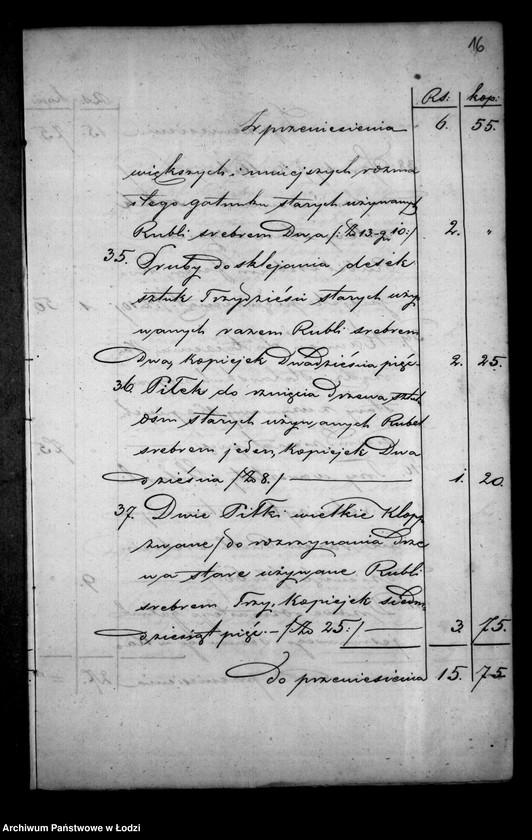 16
Rs: kop:
Z przeniesienia 6. 55.
większych i mniejszych rozma
itego gatunku starych używanych
Rubli srebrem Dwa /: Zł 13 gr 10:/ 2. "
35. Śruby do sklejania desek
sztuk Trzydzieści starych uży
wanych razem Rubli srebrem
Dwa, kopiejek Dwadzieścia pięć 2. 25.
36. Piłek do rznięcia drzewa sztuk
Ośm starych używanych Rubel
srebrem jeden, kopiejek Dwa
dzieścia /Zł 8./ 1. 20.
37. Dwie Piłki wielkie Klopp
zwane / do rozrzynania Drze
wa stare używane Rubli
srebrem Trzy, kopiejek siedm
dziesiąt pięć. – /Zł 25:/ 3. 75.
Do przeniesienia 15. 75
Archiwum Państwowe w Łodzi